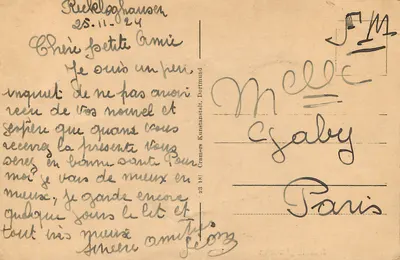 Recklinghausen
25-11-24
Chère petite amie
Je suis un peu
inquiet de ne pas avoir
recu de vos nouvel et
espère que quand vous
recevrez la présente vous
serez en bonne santé Pour
moi je vais de mieux en
mieux, je garde encore
quelque jours le lit et
tout très mieux
Sincère amitiés
Léon
Cramers Kunstanstalt, Dortmund
F.M
Melle
Gaby
Paris